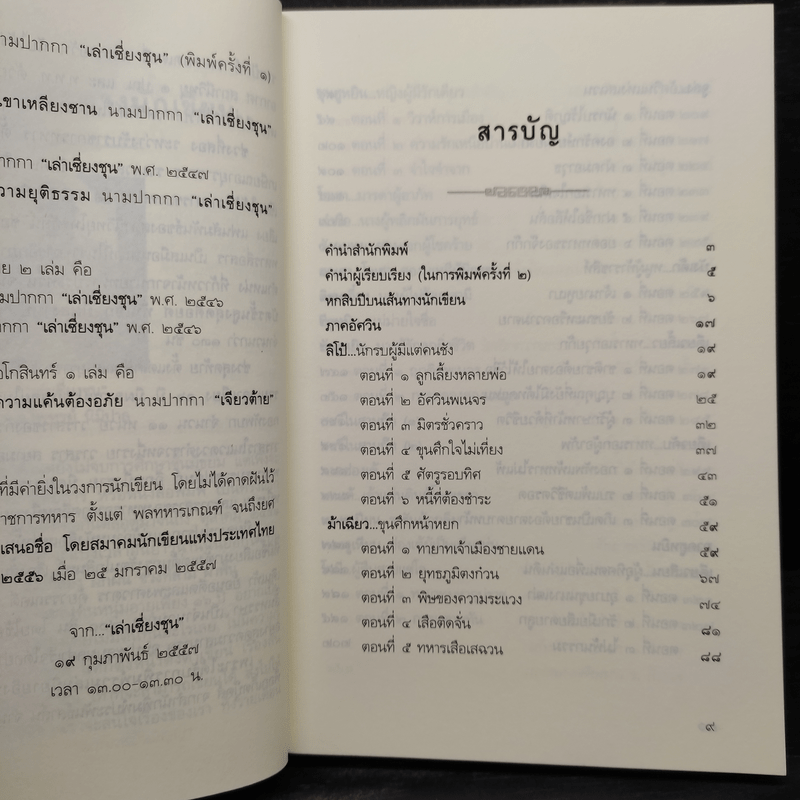 นามปากกา “เล่าเซี่ยงชุน” (พิมพ์ครั้งที่ ๑)
เขาเหลียงซาน นามปากกา “เล่าเซี่ยงชุน”
ปากกา “เล่าเซี่ยงชุน” พ.ศ. ๒๕๔๗
ความยุติธรรม นามปากกา “เล่าเซี่ยงชุน”
๒ เล่ม คือ
นามปากกา “เล่าเซี่ยงชุน” พ.ศ. ๒๕๔๖
ปากกา “เล่าเซี่ยงชุน” พ.ศ. ๒๕๔๖
โกสินทร์ ๑ เล่ม คือ
ความแค้นต้องอภัย นามปากกา “เจียวต้าย”
ที่มีค่ายิ่งในวงการนักเขียน โดยไม่ได้คาดฝันไว้
ราชการทหาร ตั้งแต่ พลทหารเกณฑ์ จนถึงยศ
เสนอชื่อ โดยสมาคมนักเขียนแห่งประเทศไทย
๒๕๕๖ เมื่อ ๒๕ มกราคม ๒๕๕๗
จาก...“เล่าเซี่ยงชุน”
๑๙ กุมภาพันธ์ ๒๕๕๗
เวลา ๑๓.๐๐-๑๓.๓๐ น.
สารบัญ
คำนำสำนักพิมพ์ ๓
คำนำผู้เรียบเรียง (ในการพิมพ์ครั้งที่ ๒) ๕
หกสิบปีบนเส้นทางนักเขียน ๖
ภาคอัศวิน ๑๗
ลิโป้...นักรบผู้มีแต่คนชัง ๑๙
ตอนที่ ๑ ลูกเลี้ยงหลายพ่อ ๑๙
ตอนที่ ๒ อัศวินพเนจร ๒๕
ตอนที่ ๓ มิตรชั่วคราว ๓๒
ตอนที่ ๔ ขุนศึกใจไม่เที่ยง ๓๗
ตอนที่ ๕ ศัตรูรอบทิศ ๔๓
ตอนที่ ๖ หนี้ที่ต้องชำระ ๕๑
ม้าเฉียว...ขุนศึกหน้าหยก ๕๙
ตอนที่ ๑ ทายาทเจ้าเมืองชายแดน ๕๙
ตอนที่ ๒ ยุทธภูมิตงก๋วน ๖๗
ตอนที่ ๓ พิษของความระแวง ๗๔
ตอนที่ ๔ เสือติดจั่น ๘๑
ตอนที่ ๕ ทหารเสือเสฉวน ๘๘
๙